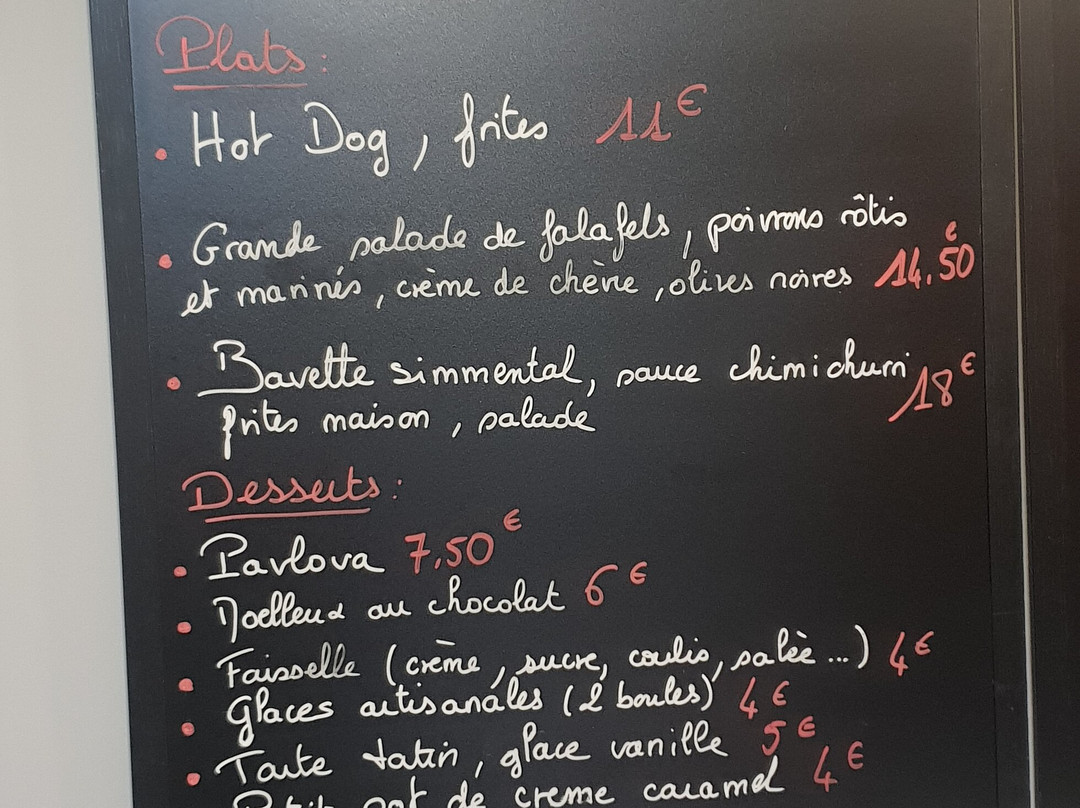 Plats :
• Hot Dog, frites 11€
• Grande salade de falafels, poivrons rôtis
et marinés, crème de chèvre, olives noires 14.50€
• Bavette simmental, sauce chimichurri
frites maison, salade 18€
Desserts :
• Pavlova 7.50€
• Moelleux au chocolat 6€
• Faisselle (crème, sucre, coulis, salée...) 4€
• Glaces artisanales (2 boules) 4€
• Tarte tatin, glace vanille 5€
Petit pot de creme caramel 4€